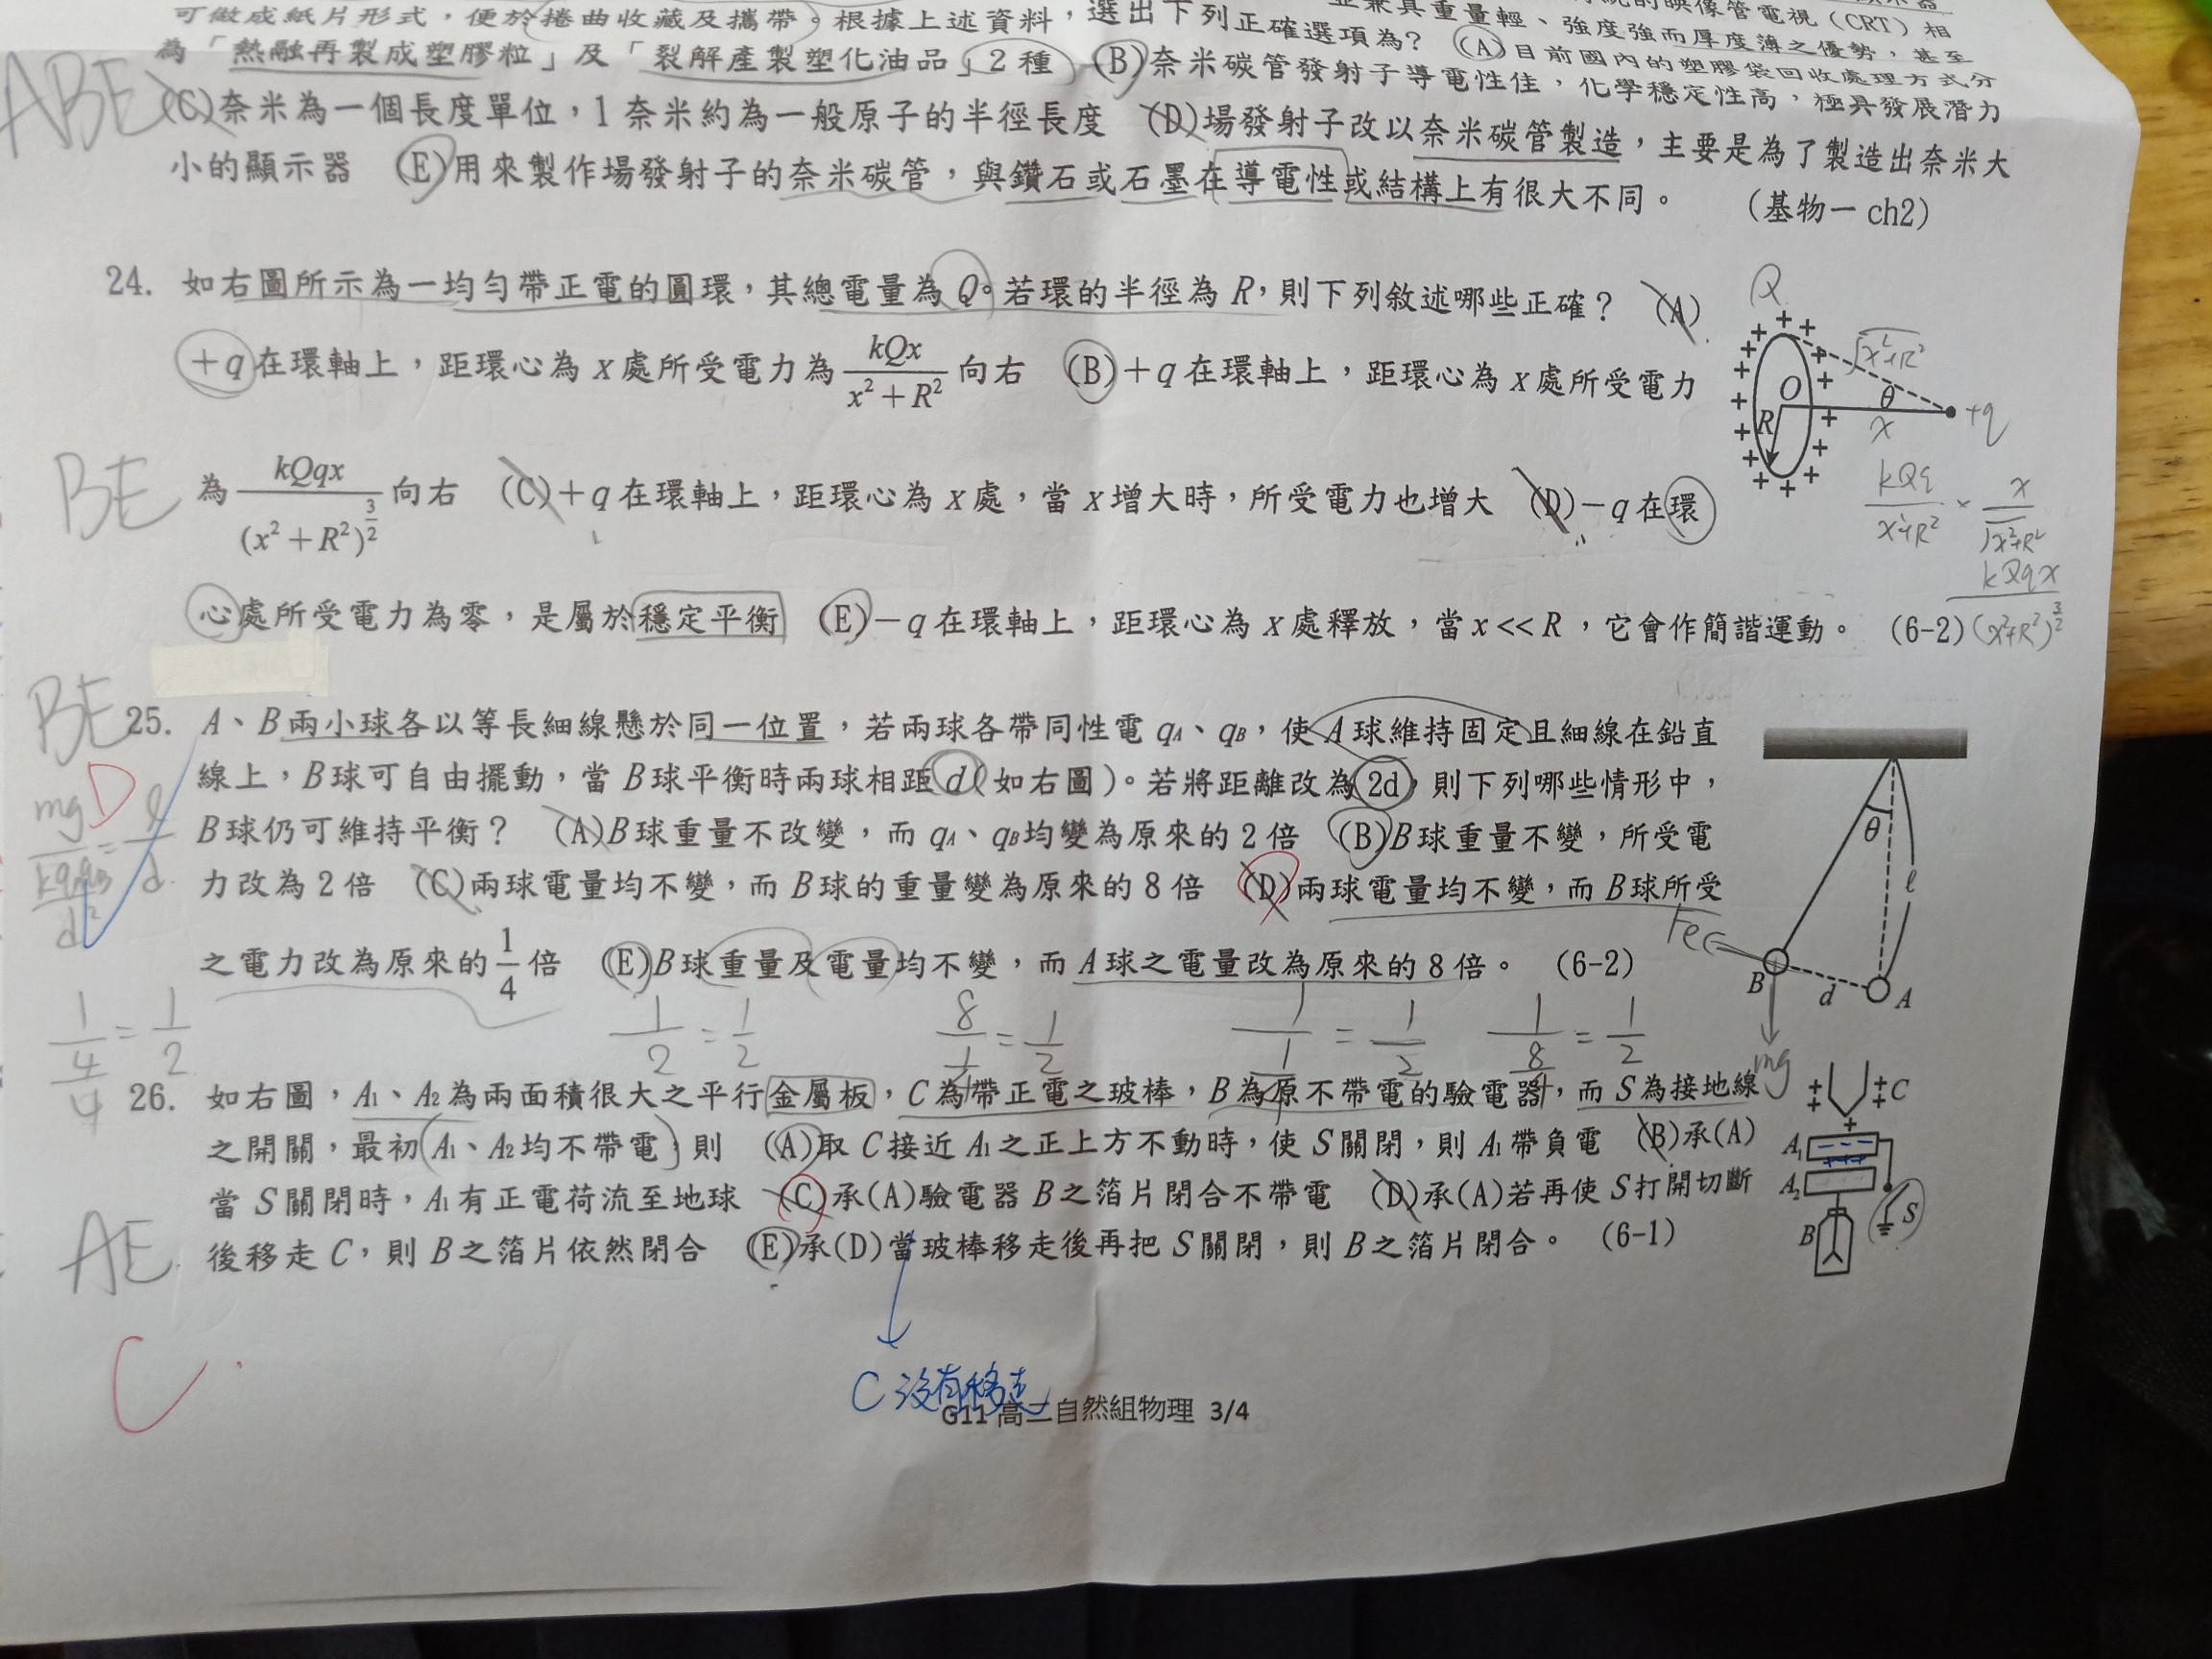 可做成紙片形式，便於捲曲收藏及攜帶。根據上述資料，選出下列正確選項為？ (A)目前國內的塑膠袋回收處理方式分
為「熱融再製成塑膠粒」及「裂解產製塑化油品」2種 (B)奈米碳管發射子導電性佳，化學穩定性高，極具發展潛力
(C)奈米為一個長度單位，1奈米約為一般原子的半徑長度 (D)場發射子改以奈米碳管製造，主要是為了製造出奈米大
小的顯示器 (E)用來製作場發射子的奈米碳管，與鑽石或石墨在導電性或結構上有很大不同。 (基物一 ch2)
ABE
24. 如右圖所示為一均勻帶正電的圓環，其總電量為 Q。若環的半徑為 R，則下列敘述哪些正確？ (A)
+q 在環軸上，距環心為 x 處所受電力為 kQx/(x²+R²) 向右 (B)+q 在環軸上，距環心為 x 處所受電力
為 kQqx/(x²+R²)^(3/2) 向右 (C)+q 在環軸上，距環心為 x 處，當 x 增大時，所受電力也增大 (D)−q 在環
心處所受電力為零，是屬於穩定平衡 (E)−q 在環軸上，距環心為 x 處釋放，當 x<<R，它會作簡諧運動。 (6-2)
BE
Q
√x²+R²
O
θ
R
x
+q
kQq/(x²+R²) × x/√x²+R²
kQqx/(x²+R²)^(3/2)
25. A、B 兩小球各以等長細線懸於同一位置，若兩球各帶同性電 qA、qB，使 A 球維持固定且細線在鉛直
線上，B 球可自由擺動，當 B 球平衡時兩球相距 d(如右圖)。若將距離改為 2d，則下列哪些情形中，
B 球仍可維持平衡？ (A)B 球重量不改變，而 qA、qB 均變為原來的 2 倍 (B)B 球重量不變，所受電
力改為 2 倍 (C)兩球電量均不變，而 B 球的重量變為原來的 8 倍 (D)兩球電量均不變，而 B 球所受
之電力改為原來的 1/4 倍 (E)B 球重量及電量均不變，而 A 球之電量改為原來的 8 倍。 (6-2)
BE
D
mg/(kqAqB/d²) = ℓ/d
θ
ℓ
Fe
B
d
A
mg
1/(4/4) = 1/2
1/2 = 1/2
8/(1/4) = 1/2
1/(1/4) = 1/2
1/(8/4) = 1/2
26. 如右圖，A₁、A₂ 為兩面積很大之平行金屬板，C 為帶正電之玻棒，B 為原不帶電的驗電器，而 S 為接地線
之開關，最初 A₁、A₂ 均不帶電，則 (A)取 C 接近 A₁ 之正上方不動時，使 S 關閉，則 A₁ 帶負電 (B)承(A)
當 S 關閉時，A₁ 有正電荷流至地球 (C)承(A)驗電器 B 之箔片閉合不帶電 (D)承(A)若再使 S 打開切斷
後移走 C，則 B 之箔片依然閉合 (E)承(D)當玻棒移走後再把 S 關閉，則 B 之箔片閉合。 (6-1)
AE
C
C
A₁
A₂
B
S
C 沒有移走
G11 高二自然組物理 3/4